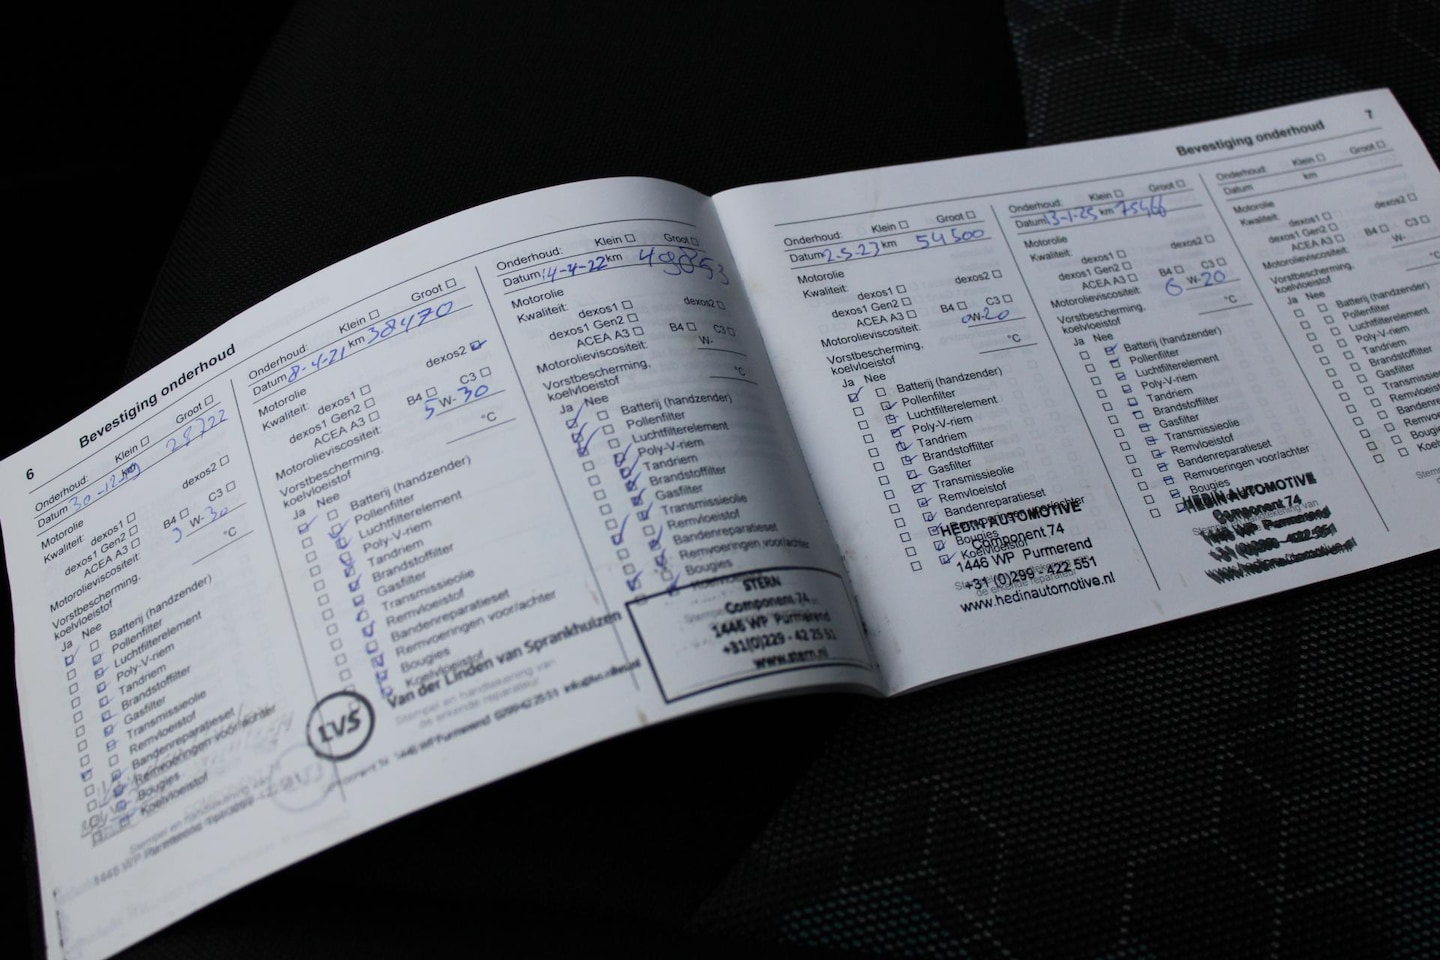 6
Bevestiging onderhoud
Onderhoud: Klein Groot
Datum 30-12-19 km 28722
Motorolie
Kwaliteit: dexos1 dexos2
dexos1 Gen2
ACEA A3 B4 C3
Motorolieviscositeit: W-30
Vorstbescherming, °C
koelvloeistof
Ja Nee
Batterij (handzender)
Pollenfilter
Luchtfilterelement
Poly-V-riem
Tandriem
Brandstoffilter
Gasfilter
Transmissieolie
Remvloeistof
Bandenreparatieset
Remvoeringen voor/achter
Bougies
Koelvloeistof
Stempel en handtekening van
1446 WP Purmerend
Onderhoud: Klein Groot
Datum 8-4-21 km 38470
Motorolie
Kwaliteit: dexos1 dexos2
dexos1 Gen2
ACEA A3 B4 C3
Motorolieviscositeit: 5 W-30
Vorstbescherming, °C
koelvloeistof
Ja Nee
Batterij (handzender)
Pollenfilter
Luchtfilterelement
Poly-V-riem
Tandriem
Brandstoffilter
Gasfilter
Transmissieolie
Remvloeistof
Bandenreparatieset
Remvoeringen voor/achter
Bougies
Koelvloeistof
LVS
Van der Linden van Sprankhuizen
Stempel en handtekening van
de erkende reparateur
1446 WP Purmerend
Onderhoud: Klein Groot
Datum 14-4-22 km
Motorolie
Kwaliteit: dexos1 dexos2
dexos1 Gen2
ACEA A3 B4 C3
Motorolieviscositeit: W-
Vorstbescherming, °C
koelvloeistof
Ja Nee
Batterij (handzender)
Pollenfilter
Luchtfilterelement
Poly-V-riem
Tandriem
Brandstoffilter
Gasfilter
Transmissieolie
Remvloeistof
Bandenreparatieset
Remvoeringen voor/achter
Bougies
STERN
Component 74
1446 WP Purmerend
+31(0)229 - 42 25 51
www.stern.nl
Bevestiging onderhoud
7
Onderhoud: Klein Groot
Datum 2-5-23 km 54500
Motorolie
Kwaliteit: dexos1 dexos2
dexos1 Gen2
ACEA A3 B4 C3
Motorolieviscositeit: 0W-20
Vorstbescherming, °C
koelvloeistof
Ja Nee
Batterij (handzender)
Pollenfilter
Luchtfilterelement
Poly-V-riem
Tandriem
Brandstoffilter
Gasfilter
Transmissieolie
Remvloeistof
Bandenreparatieset
Bougies
Koelvloeistof
HEDIN AUTOMOTIVE
Component 74
1446 WP Purmerend
+31 (0)299 - 422 551
www.hedinautomotive.nl
Onderhoud: Klein Groot
Datum 13-1-25 km 75466
Motorolie
Kwaliteit: dexos1 dexos2
dexos1 Gen2
ACEA A3 B4 C3
Motorolieviscositeit: 0 W-20
Vorstbescherming, °C
koelvloeistof
Ja Nee
Batterij (handzender)
Pollenfilter
Luchtfilterelement
Poly-V-riem
Tandriem
Brandstoffilter
Gasfilter
Transmissieolie
Remvloeistof
Bandenreparatieset
Remvoeringen voor/achter
Bougies
HEDIN AUTOMOTIVE
Component 74
1446 WP Purmerend
+31 (0)299 - 422 551
www.hedinautomotive.nl
Onderhoud: Klein Groot
Datum km
Motorolie
Kwaliteit: dexos1 dexos2
dexos1 Gen2
ACEA A3 B4 C3
Motorolieviscositeit: W-
Vorstbescherming,
koelvloeistof
Ja Nee
Batterij (handzender)
Pollenfilter
Luchtfilterelement
Poly-V-riem
Tandriem
Brandstoffilter
Gasfilter